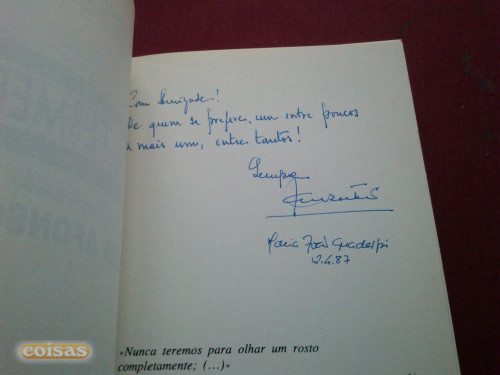 Com Amizade!
de quem se prefere, um entre poucos
a mais um, entre tantos!
Sempre
Maria João
12.4.87
«Nunca teremos para olhar um rosto
completamente; (...)»
coisas